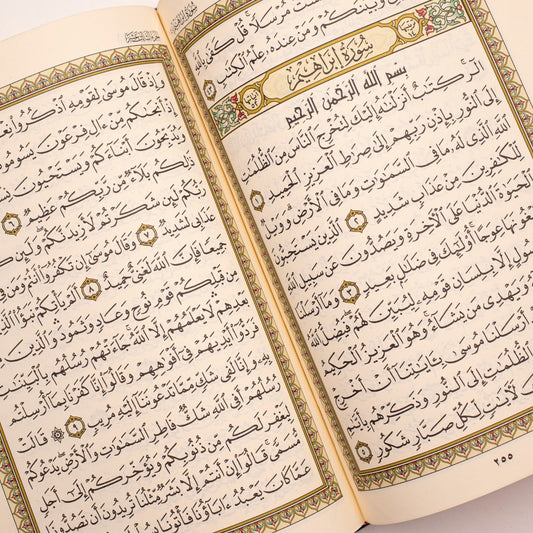 لَسْتَ مُرْسَلًا ۚ قُلْ كَفَىٰ
وَبَيْنَكُمْ وَمَنْ عِندَهُۥ عِلْمُ ٱلْكِتَـٰبِ ٤٣
سُورَةُ إِبْرَاهِيمَ
بِسْمِ ٱللَّهِ ٱلرَّحْمَـٰنِ ٱلرَّحِيمِ
الٓر ۚ كِتَـٰبٌ أَنزَلْنَـٰهُ إِلَيْكَ لِتُخْرِجَ ٱلنَّاسَ مِنَ ٱلظُّلُمَـٰتِ
إِلَى ٱلنُّورِ بِإِذْنِ رَبِّهِمْ إِلَىٰ صِرَٰطِ ٱلْعَزِيزِ ٱلْحَمِيدِ ١
ٱللَّهِ ٱلَّذِى لَهُۥ مَا فِى ٱلسَّمَـٰوَٰتِ وَمَا فِى ٱلْأَرْضِ ۗ وَوَيْلٌ
لِّلْكَـٰفِرِينَ مِنْ عَذَابٍ شَدِيدٍ ٢ ٱلَّذِينَ يَسْتَحِبُّونَ
ٱلْحَيَوٰةَ ٱلدُّنْيَا عَلَى ٱلْـَٔاخِرَةِ وَيَصُدُّونَ عَن سَبِيلِ ٱللَّهِ
عِوَجًا ۚ أُو۟لَـٰٓئِكَ فِى ضَلَـٰلٍۭ بَعِيدٍ ٣ وَمَآ أَرْسَلْنَا
إِلَّا بِلِسَانِ قَوْمِهِۦ لِيُبَيِّنَ لَهُمْ ۖ فَيُضِلُّ ٱللَّهُ
وَيَهْدِى مَن يَشَآءُ ۚ وَهُوَ ٱلْعَزِيزُ ٱلْحَكِيمُ
أَرْسَلْنَا مُوسَىٰ بِـَٔايَـٰتِنَآ أَنْ أَخْرِجْ
ٱلظُّلُمَـٰتِ إِلَى ٱلنُّورِ وَذَكِّرْهُم
لَـَٔايَـٰتٍ لِّكُلِّ صَبَّارٍ شَكُورٍ ٥
٢٥٥
وَإِذْ قَالَ مُوسَىٰ لِقَوْمِهِ ٱذْكُرُوا۟
أَنجَىٰكُم مِّنْ ءَالِ فِرْعَوْنَ يَسُومُونَكُمْ
وَيُذَبِّحُونَ أَبْنَآءَكُمْ وَيَسْتَحْيُونَ
ذَٰلِكُم بَلَآءٌ مِّن رَّبِّكُمْ عَظِيمٌ ٦
رَبُّكُمْ لَئِن شَكَرْتُمْ لَأَزِيدَنَّكُمْ ۖ وَلَئِن
عَذَابِى لَشَدِيدٌ ٧ وَقَالَ مُوسَىٰٓ إِن تَكْفُرُوٓا۟ أَنتُمْ وَمَن
جَمِيعًا فَإِنَّ ٱللَّهَ لَغَنِىٌّ حَمِيدٌ ٨ أَلَمْ يَأْتِكُمْ نَبَؤُا۟ ٱلَّذِينَ
مِن قَبْلِكُمْ قَوْمِ نُوحٍ وَعَادٍ وَثَمُودَ ۛ وَٱلَّذِينَ
بَعْدِهِمْ ۛ لَا يَعْلَمُهُمْ إِلَّا ٱللَّهُ ۚ جَآءَتْهُمْ رُسُلُهُم بِٱلْبَيِّنَـٰتِ
فَرَدُّوٓا۟ أَيْدِيَهُمْ فِىٓ أَفْوَٰهِهِمْ وَقَالُوٓا۟ إِنَّا كَفَرْنَا بِمَآ أُرْسِلْتُم
بِهِۦ وَإِنَّا لَفِى شَكٍّ مِّمَّا تَدْعُونَنَآ إِلَيْهِ مُرِيبٍ ٩ ۞ قَالَتْ
رُسُلُهُمْ أَفِى ٱللَّهِ شَكٌّ فَاطِرِ ٱلسَّمَـٰوَٰتِ وَٱلْأَرْضِ ۖ يَدْعُوكُمْ
لِيَغْفِرَ لَكُم مِّن ذُنُوبِكُمْ وَيُؤَخِّرَكُمْ إِلَىٰٓ أَجَلٍ
مُّسَمًّى ۚ قَالُوٓا۟ إِنْ أَنتُمْ إِلَّا بَشَرٌ مِّثْلُنَا تُرِيدُونَ أَن تَصُدُّونَا
عَمَّا كَانَ يَعْبُدُ ءَابَآؤُنَا فَأْتُونَا